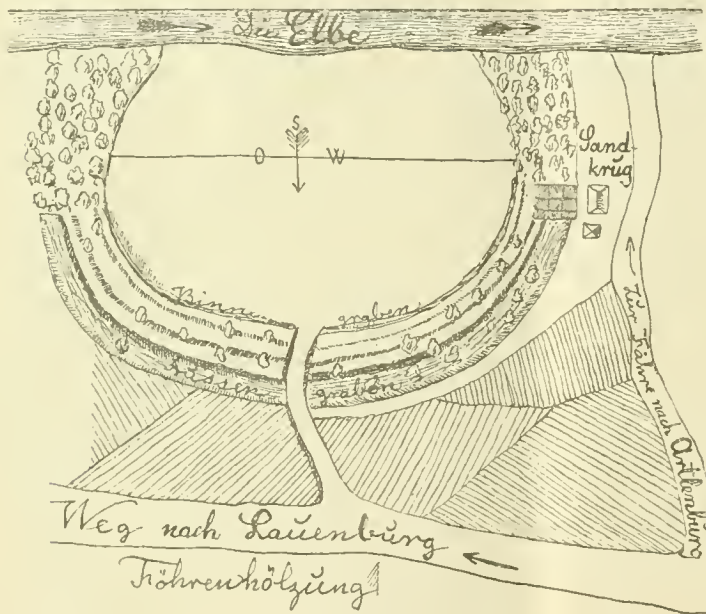 Die Elbe
S
O W
Sand
krug
Binnen
graben
Aussen
graben
Zur Fähre nach Artlenburg
Weg nach Lauenburg
Föhrenhölzung